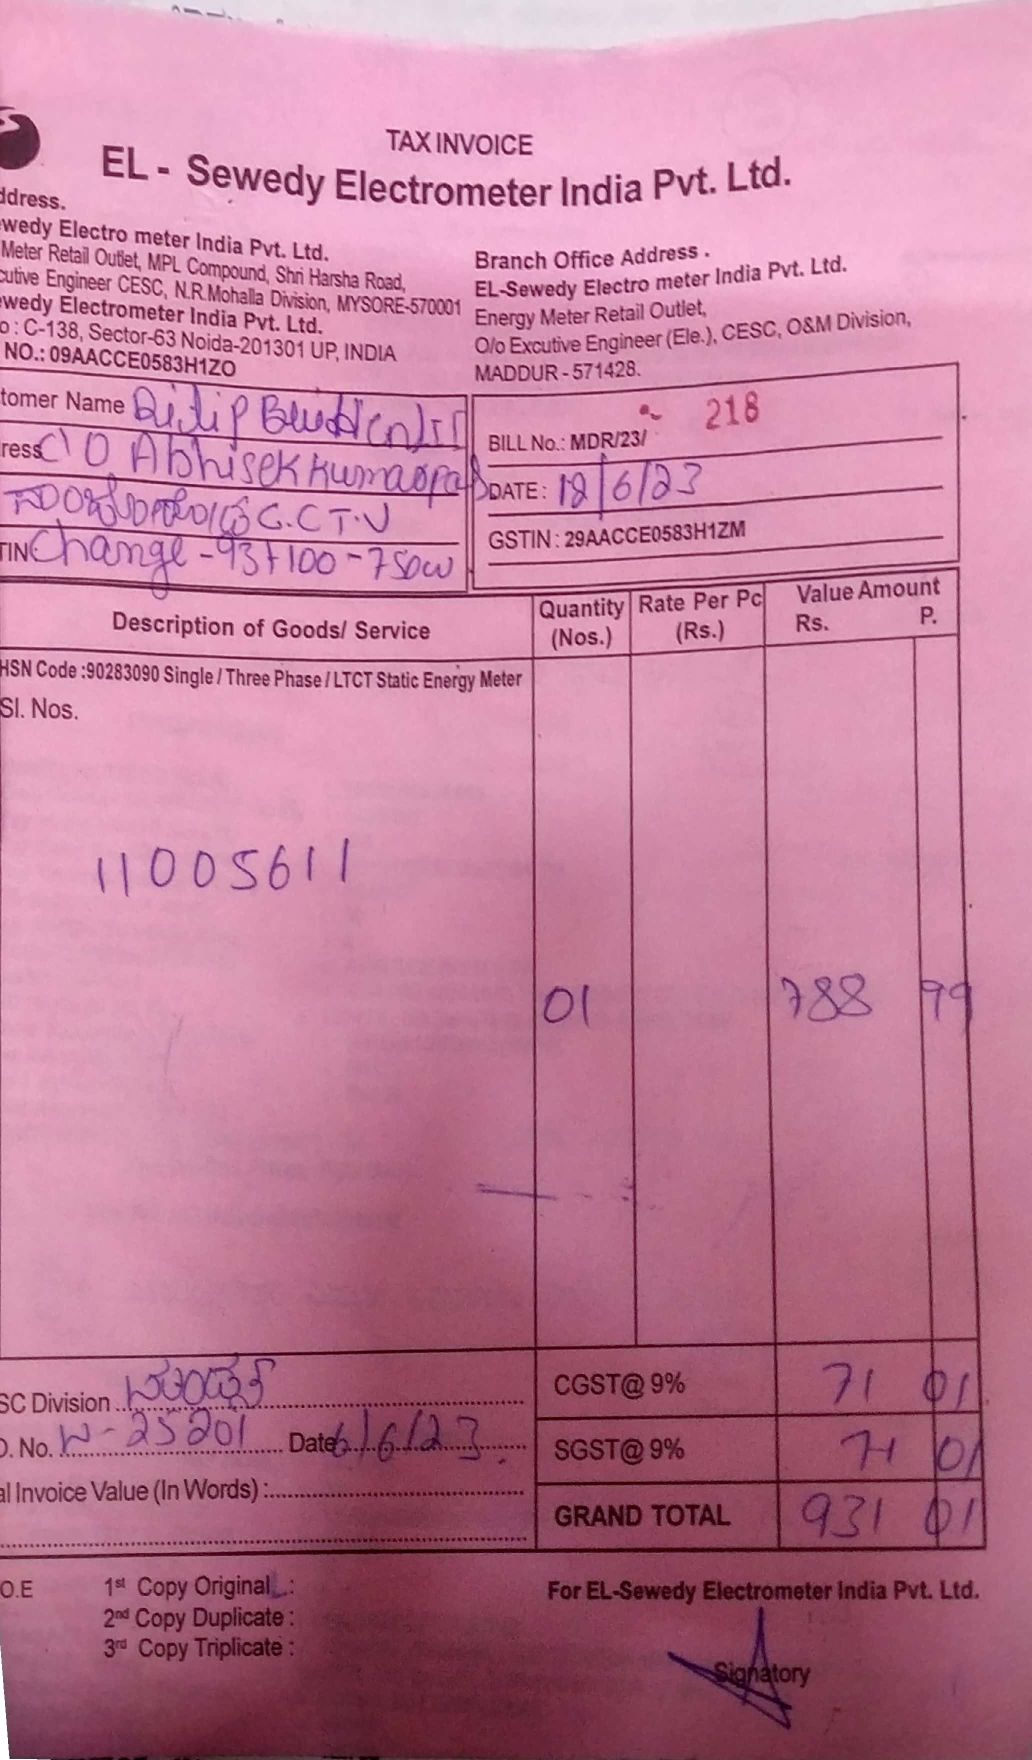 TAX INVOICE
EL - Sewedy Electrometer India Pvt. Ltd.
ddress.
wedy Electro meter India Pvt. Ltd.
Meter Retail Outlet, MPL Compound, Shri Harsha Road,
cutive Engineer CESC, N.R.Mohalla Division, MYSORE-570001
wedy Electrometer India Pvt. Ltd.
o : C-138, Sector-63 Noida-201301 UP, INDIA
NO.: 09AACCE0583H1ZO
Branch Office Address .
EL-Sewedy Electro meter India Pvt. Ltd.
Energy Meter Retail Outlet,
O/o Excutive Engineer (Ele.), CESC, O&M Division,
MADDUR - 571428.
tomer Name Dilip
ress C/O Abhisek Kumar
C.C T.V
TIN Change - 93+100 - 750w
BILL No.: MDR/23/ 218
DATE : 12/6/23
GSTIN : 29AACCE0583H1ZM
Description of Goods/ Service
Quantity (Nos.)
Rate Per Pc (Rs.)
Value Amount
Rs. P.
HSN Code :90283090 Single / Three Phase / LTCT Static Energy Meter
Sl. Nos.
11005611
01 788 99
SC Division
CGST@ 9% 71 01
O. No. W-25201 Date 6/6/23
SGST@ 9% 71 01
al Invoice Value (In Words) :
GRAND TOTAL 931 01
O.E
1st Copy Original :
2nd Copy Duplicate :
3rd Copy Triplicate :
For EL-Sewedy Electrometer India Pvt. Ltd.
Signatory